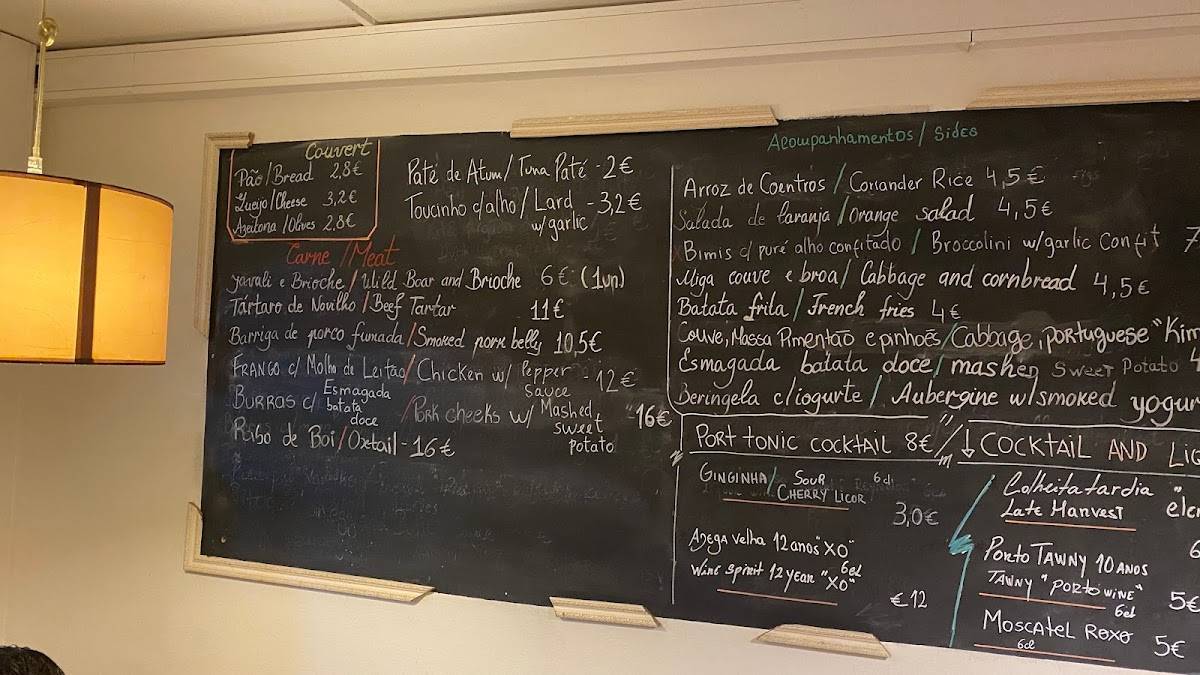 Couvert
Pão/Bread 2,8€
Queijo/Cheese 3,2€
Azeitona/Olives 2.8€
Paté de Atum/Tuna Paté - 2€
Toucinho c/alho/Lard - 3,2€
w/garlic
Carne/Meat
Javali e Brioche/Wild Boar and Brioche 6€ (1un)
Tártaro de Novilho/Beef Tartar 11€
Barriga de porco fumada/Smoked pork belly 10,5€
FRANGO c/ Molho de Leitão/Chicken w/ Pepper - 12€
sauce
BURRAS c/ Esmagada
batata
doce
/Pork cheeks w/ Mashed 16€
sweet
potato
Ribo de Boi/Oxtail - 16€
Acompanhamentos/Sides
Arroz de Coentros/Coriander Rice 4,5€
Salada de laranja/Orange salad 4,5€
Bimis c/ puré alho confitado/Broccolini w/garlic Confit 7
Miga couve e broa/Cabbage and cornbread 4,5€
Batata frita/French fries 4€
Couve, Massa Pimentão e pinhões/Cabbage, PORTUGUESE "Kim
Esmagada batata doce/mashed Sweet Potato
Beringela c/iogurte/Aubergine w/smoked yogur
PORT TONIC COCKTAIL 8€
↓ COCKTAIL AND LIQ
GINGINHA/SOUR 6cl
CHERRY LICOR
3,0€
Adega velha 12 anos "XO"
6cl
Wine spirit 12 year "XO"
€12
Colheita tardia "eler
Late Harvest
6
Porto TAWNY 10 ANOS
TAWNY "PORTO WINE" 5€
6cl
MOSCATEL ROXO 5€
6cl